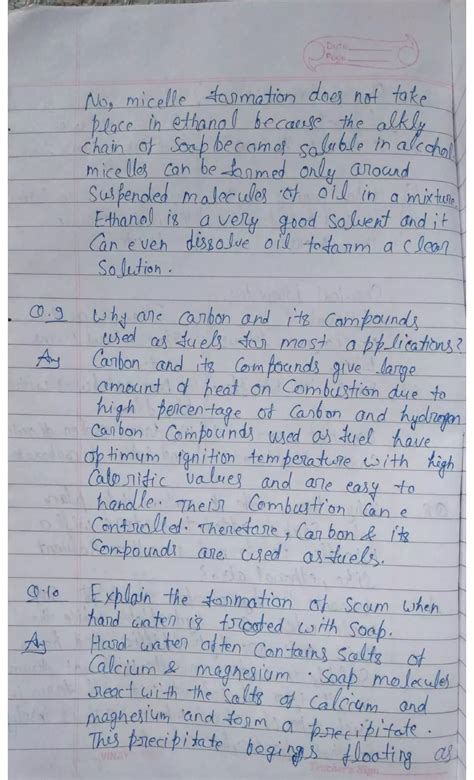 Date
Page
No, micelle formation does not take
place in ethanol because the alkly
chain of soap becomes soluble in alcohol
micelles can be formed only around
suspended molecules of oil in a mixture
Ethanol is a very good solvent and it
Can even dissolve oil to form a clear
Solution.
Q.9 Why are carbon and its compounds
used as fuels for most applications?
Ans Carbon and its compounds give large
amount of heat on combustion due to
high percentage of carbon and hydrogen
Carbon compounds used as fuel have
optimum ignition temperature with high
Calorific values and are easy to
handle. Their combustion can e
Controlled. Therefore, Carbon & its
Compounds are used as fuels.
Q.10 Explain the formation of scum when
hard water is treated with soap.
Ans Hard water often contains salts of
Calcium & magnesium. Soap molecules
react with the salts of calcium and
magnesium and form a precipitate.
This precipitate begings floating as